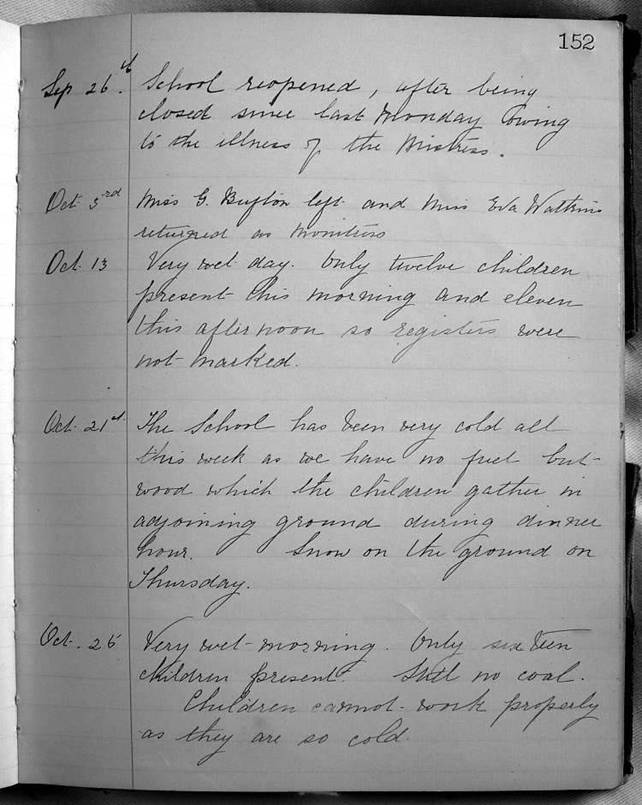 152
Sep 26th. School reopened, after being
closed since last Monday owing
to the illness of the Mistress.
Oct 3rd Miss G. Bufton left and Miss Eva Watkins
returned as Monitress
Oct. 13 Very wet day. Only twelve children
present this morning and eleven
this afternoon so registers were
not marked.
Oct. 21st. The School has been very cold all
this week as we have no fuel but
wood which the children gather in
adjoining ground during dinner
hour. Snow on the ground on
Thursday.
Oct. 25 Very wet morning. Only sixteen
children present. Still no coal.
Children cannot work properly
as they are so cold.